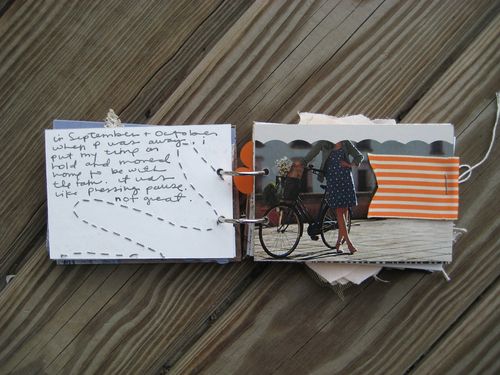 in September + October
when p was away. i
put my time on
hold and moved
home to be with
the fam. it was
like pressing pause.
not great.